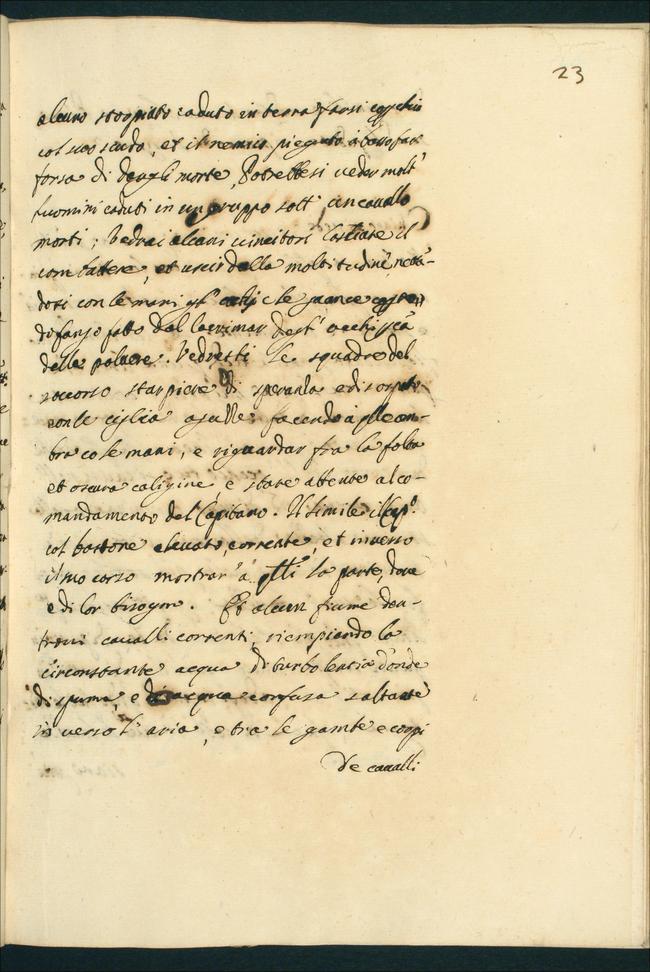 23
alcuno storpiato caduto in terra farsi
col suo scudo, et il nemico piegato à basso far
forza di dargli morte, Potrebbesi veder molt'
huomini caduti in un gruppo sott' un cavallo
morti; Vedrai alcuni vincitori lasciare il
combattere, et uscir della moltitudine, netta-
dosi con le mani gl' occhij e le guance
di fango fatto dal lacrimar degl' occhij
della polvere. Vedresti le squadre del
soccorso star piene di speranza e di sospetto
con le ciglia aguzze, facendo à om-
bra co le mani, e riguardar fra la folta
et oscura caligine, e stare attente al co-
mandamento del Capitano. Il simile il Cap.º
col bastone elevato, corrente, et inverso
il soccorso mostrar' à la parte, dove
è di lor bisogno. Et alcun fiume den-
trovi cavalli correnti, riempiendo la
circonstante acqua di turbolenza d'onde
di spuma, e di acqua confusa saltante
in verso l'aria, e tra le gambe e corpi
De cavalli